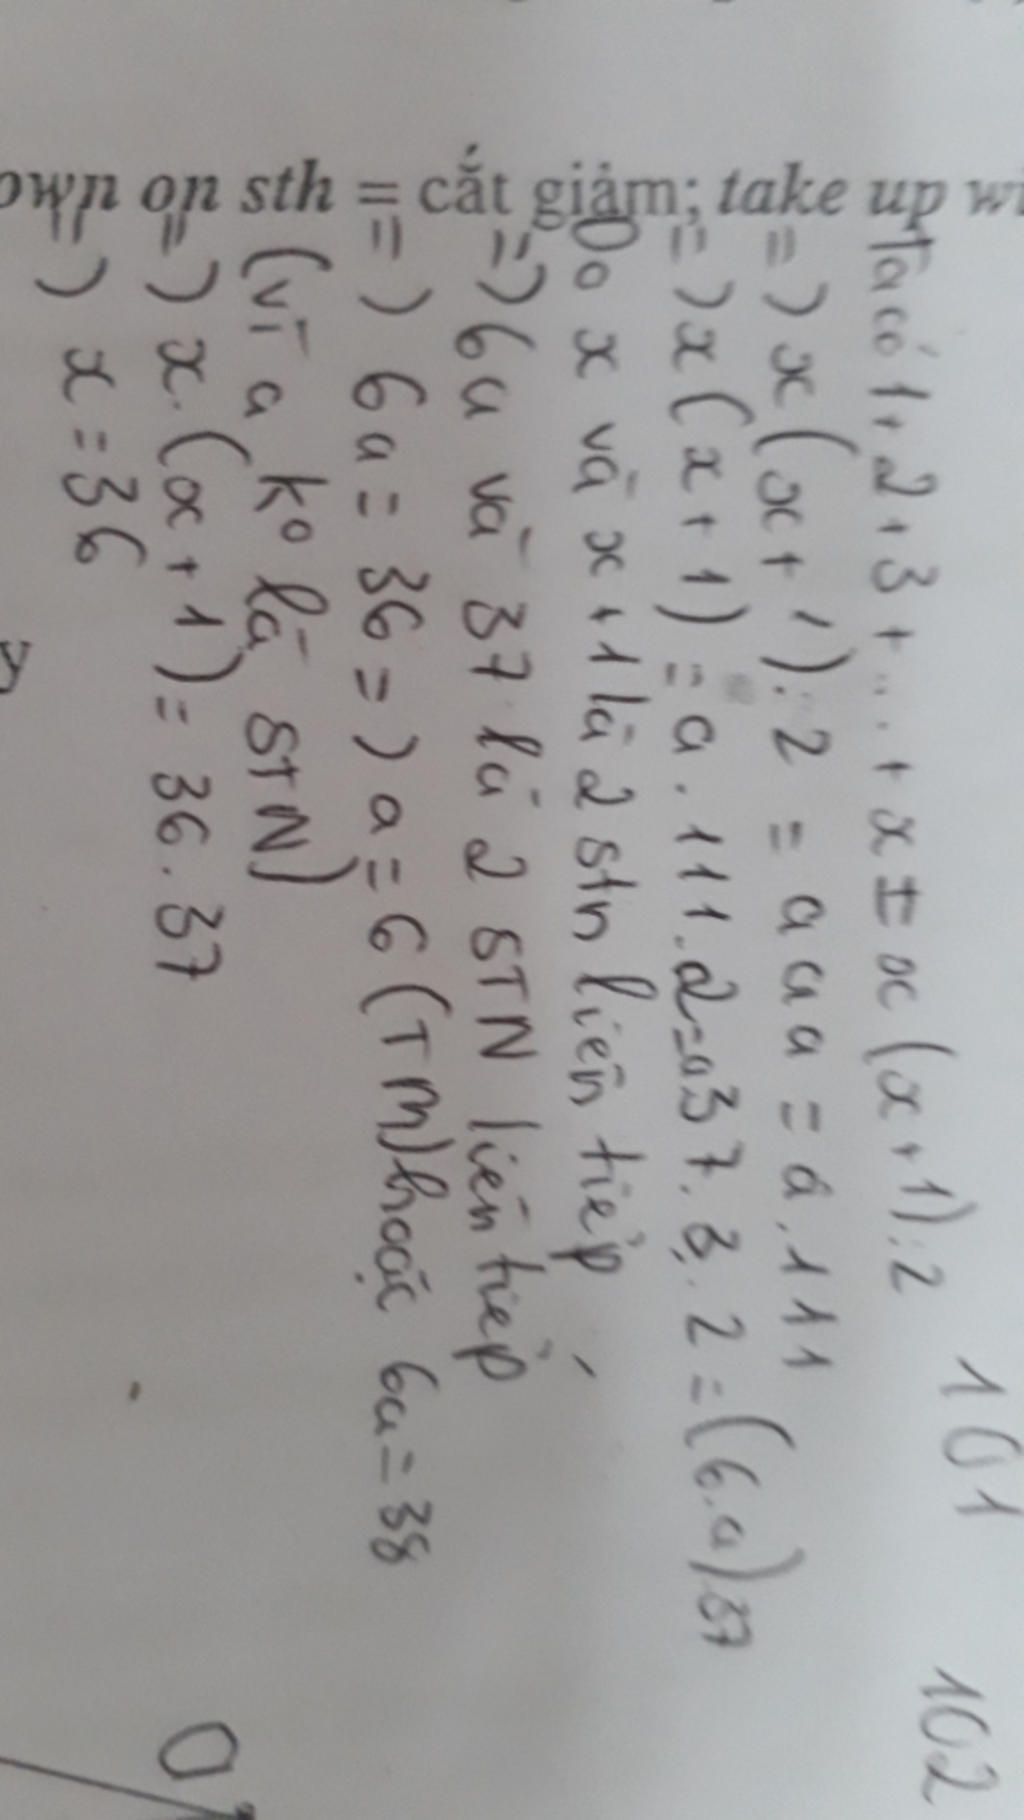 own on sth = cắt giảm; take up wi
Ta có 1+2+3+...+x = x(x+1):2
=) x(x+1):2 = aaa = a.111
=) x(x+1) = a.111.2=a37.3.2=(6.a)37
Do x và x+1 là 2 stn liên tiếp
=) 6a và 37 là 2 STN liên tiếp
=) 6a = 36 =) a = 6 (TM) hoặc 6a = 38
(vì a ko là STN)
=) x.(x+1) = 36.37
=) x = 36
101
102
y